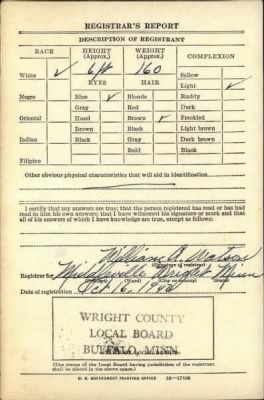 REGISTRAR'S REPORT
DESCRIPTION OF REGISTRANT
RACE HEIGHT (Approx.) WEIGHT (Approx.) COMPLEXION
White ✓ 6 ft 160 Sallow
EYES HAIR Light ✓
Negro Blue ✓ Blonde Ruddy
Gray Red Dark
Oriental Hazel Brown ✓ Freckled
Brown Black Light brown
Indian Black Gray Dark brown
Bald Black
Filipino
Other obvious physical characteristics that will aid in identification
I certify that my answers are true; that the person registered has read or has
had read to him his own answers; that I have witnessed his signature or mark and that
all of his answers of which I have knowledge are true, except as follows:
William A. Watson
Registrar for Middleville Wright Minn
Date of registration Oct 16, 1940
WRIGHT COUNTY
LOCAL BOARD
BUFFALO, MINN.
(The stamp of the Local Board having jurisdiction of the registrant
shall be placed in the above space.)
U. S. GOVERNMENT PRINTING OFFICE 16—17105